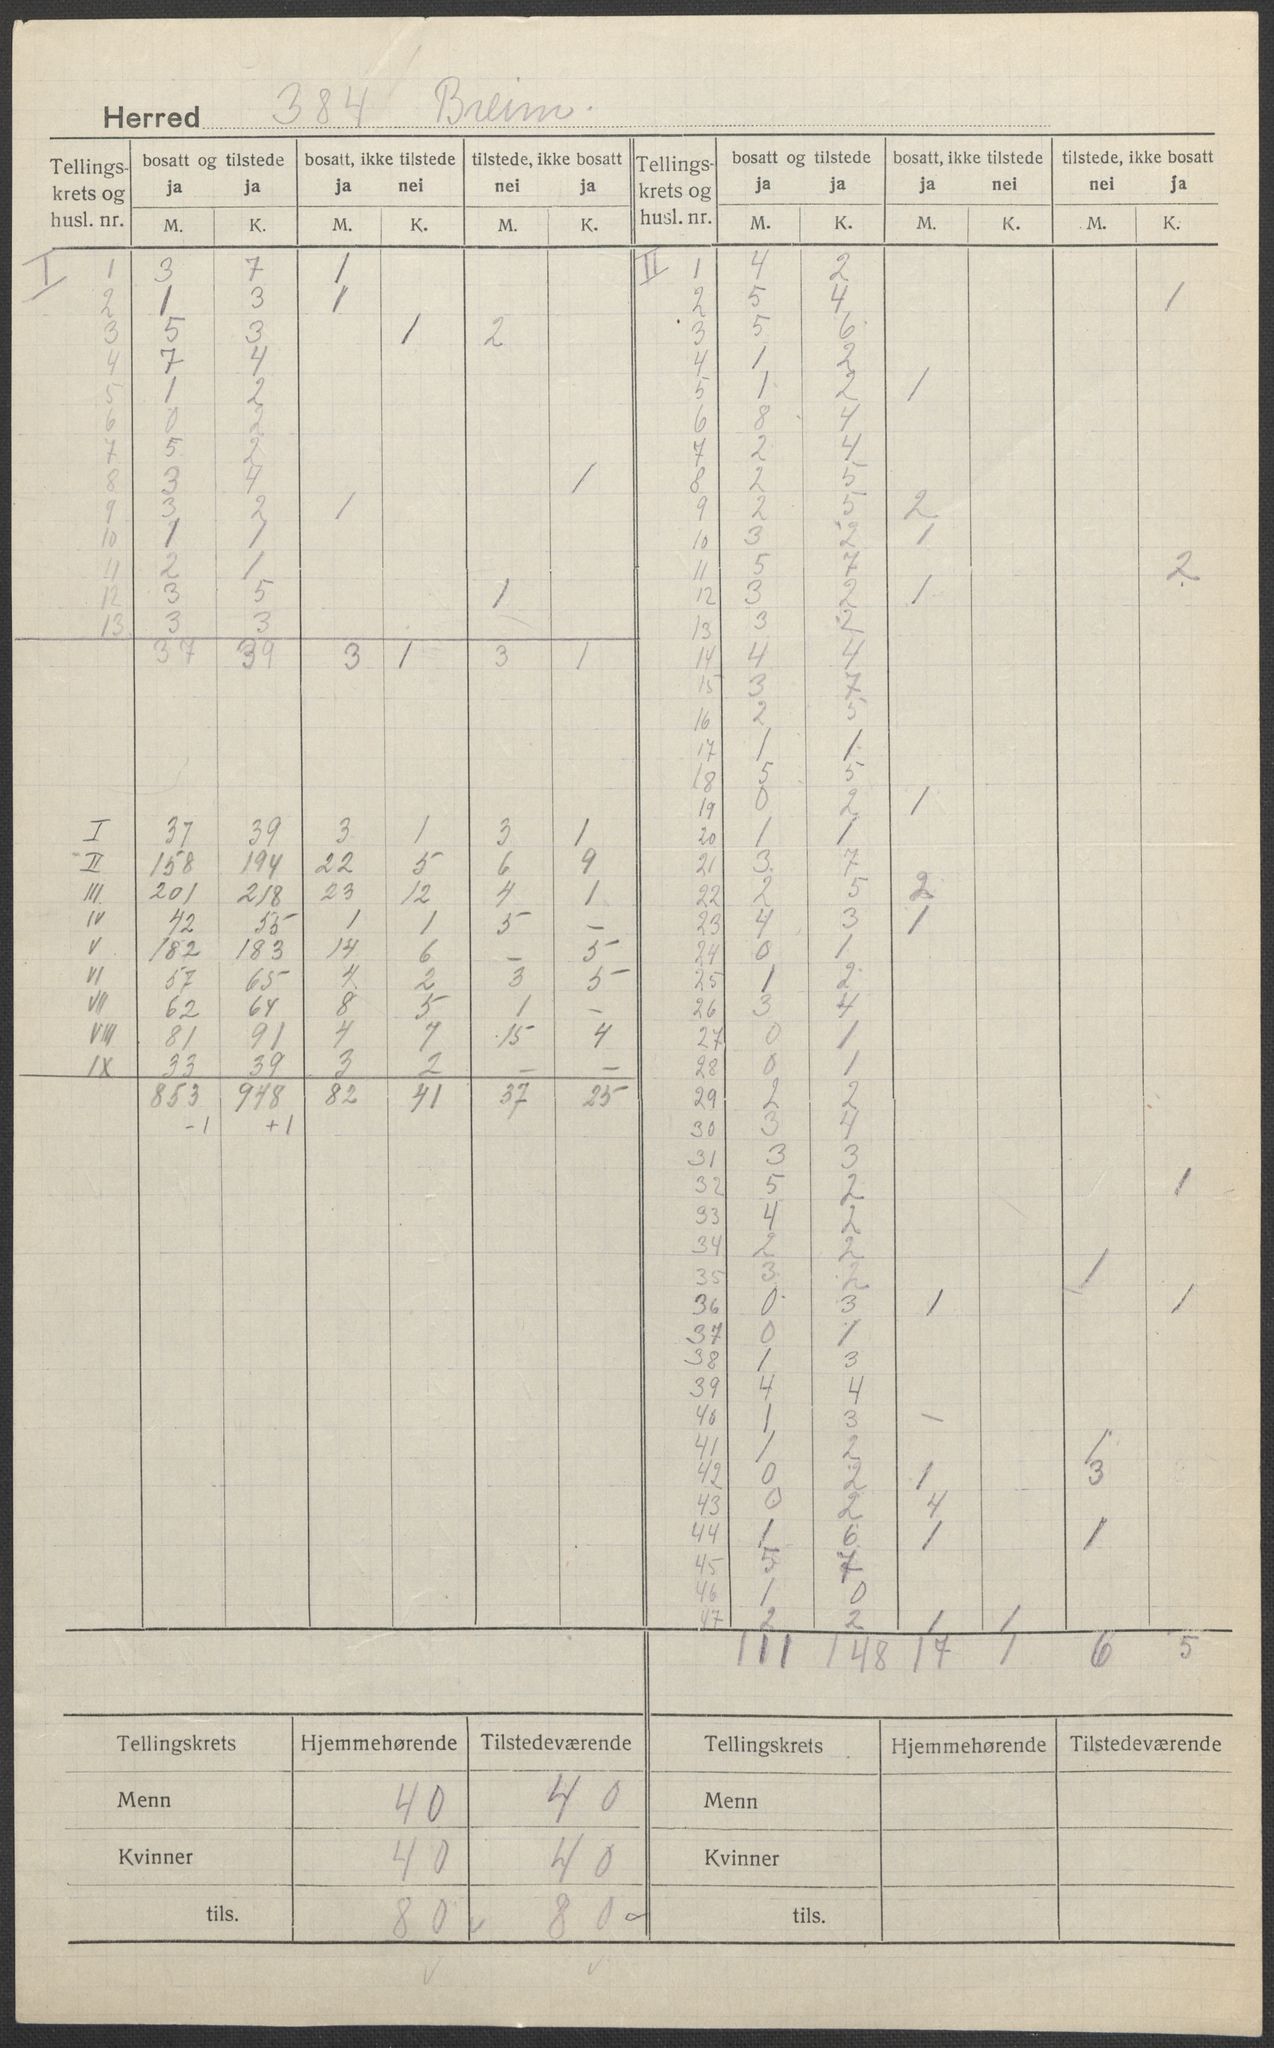 Herred 384 Breim.
Tellings- krets og husl. nr. | bosatt og tilstede ja ja | bosatt, ikke tilstede ja nei | tilstede, ikke bosatt nei ja
M. K. M. K. M. K.
I 1 3 7 1
2 1 3 1
3 5 3 1 2
4 7 4
5 1 2
6 0 2
7 5 2
8 3 4 1
9 3 2 1
10 1 1
11 2 1
12 3 5 1
13 3 3
37 39 3 1 3 1
I 37 39 3 1 3 1
II 158 194 22 5 6 9
III 201 218 23 12 4 1
IV 42 55 1 1 5 –
V 182 183 14 6 – 5
VI 57 65 4 2 3 5
VII 62 64 8 5 1 –
VIII 81 91 4 7 15 4
IX 33 39 3 2 – –
853 948 82 41 37 25
-1 +1
Tellingskrets Hjemmehørende Tilstedeværende
Menn 40 40
Kvinner 40 40
tils. 80 80
Tellings- krets og husl. nr. | bosatt og tilstede ja ja | bosatt, ikke tilstede ja nei | tilstede, ikke bosatt nei ja
M. K. M. K. M. K.
II 1 4 2
2 5 4 1
3 5 6
4 1 2
5 1 2 1
6 8 4
7 2 4
8 2 5
9 2 5 2
10 3 2 1
11 5 7 2
12 3 2 1
13 3 2
14 4 4
15 3 7
16 2 5
17 1 1
18 5 5
19 0 2 1
20 1 1
21 3 7
22 2 5 2
23 4 3 1
24 0 1
25 1 2
26 3 4
27 0 1
28 0 1
29 2 2
30 3 4
31 3 3
32 5 2 1
33 4 2
34 2 2
35 3 2 1
36 0 3 1 1
37 0 1
38 1 3
39 4 4
40 1 3 –
41 1 2 1
42 0 2 1 3
43 0 2 4
44 1 6 1 1
45 5 7
46 1 0
47 2 2 1 1
111 148 17 1 6 5
Tellingskrets Hjemmehørende Tilstedeværende
Menn
Kvinner
tils.